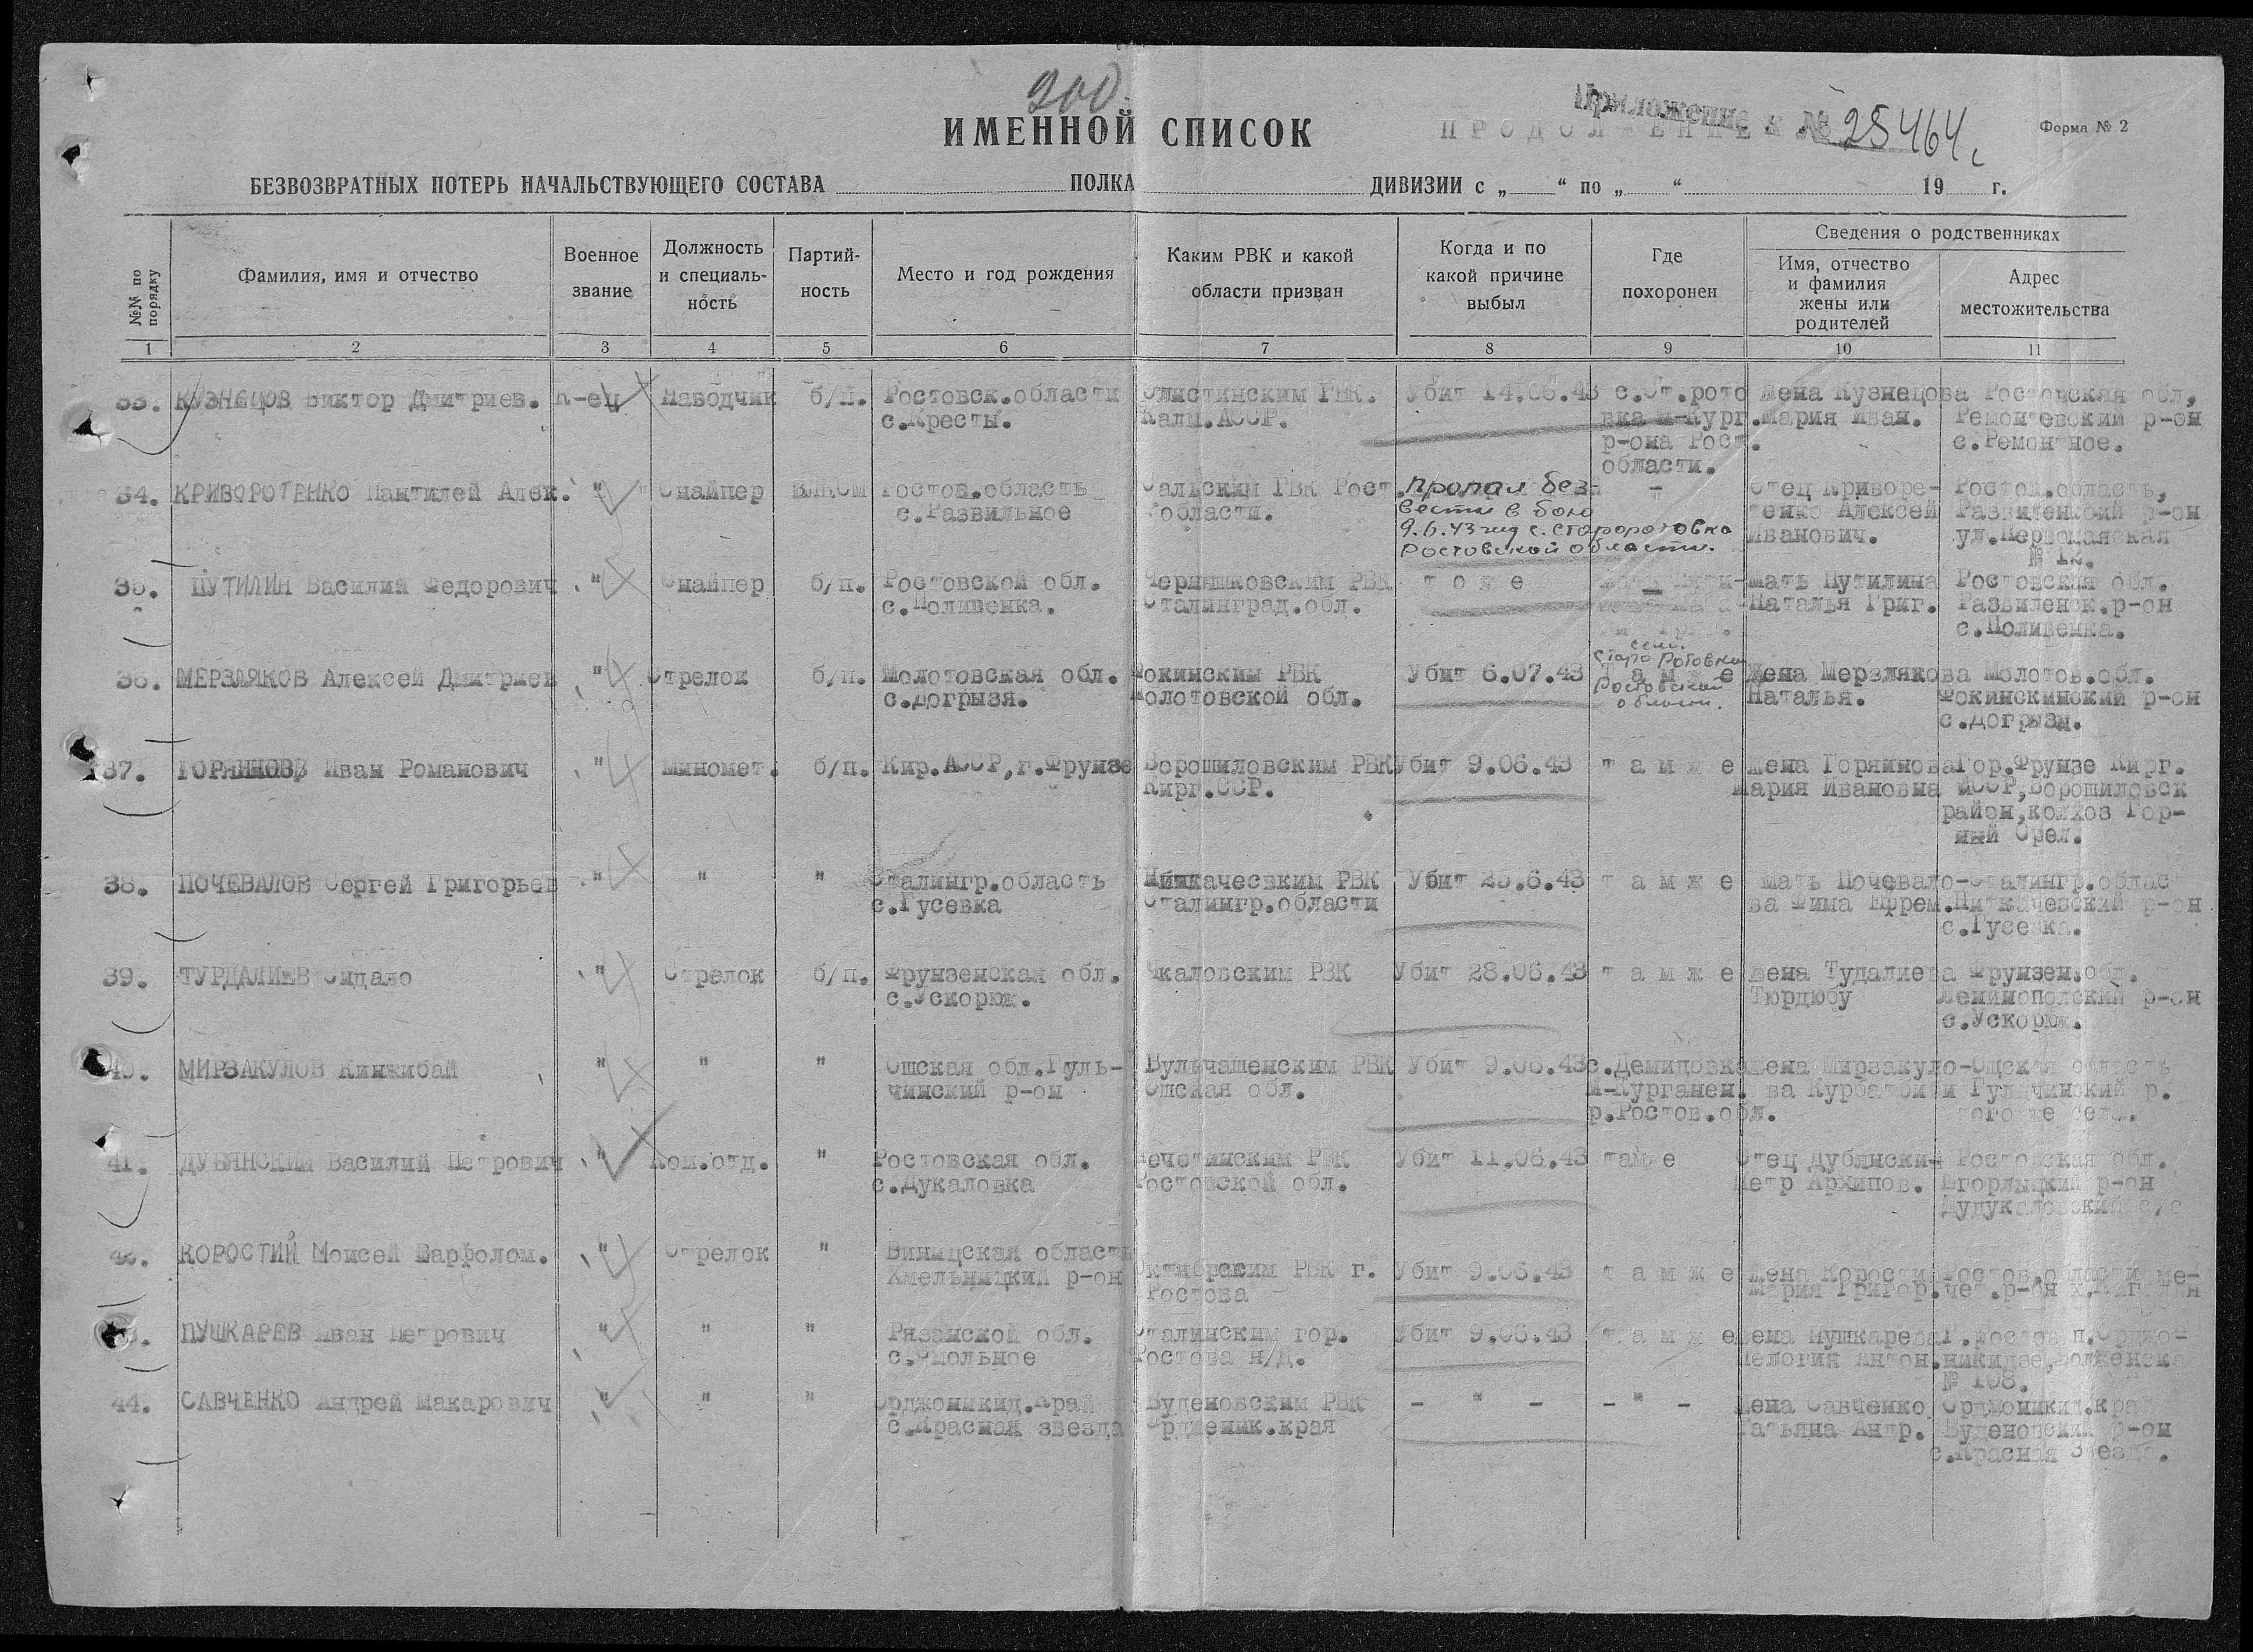 200.
Приложение № 25464
ИМЕННОЙ СПИСОК
ПРОДОЛЖЕНИЕ К
Форма № 2
БЕЗВОЗВРАТНЫХ ПОТЕРЬ НАЧАЛЬСТВУЮЩЕГО СОСТАВА ПОЛКА ДИВИЗИИ с „ “ по „ “ 19 г.
№№ по порядку
Фамилия, имя и отчество
Военное звание
Должность и специальность
Партийность
Место и год рождения
Каким РВК и какой области призван
Когда и по какой причине выбыл
Где похоронен
Сведения о родственниках
Имя, отчество и фамилия жены или родителей
Адрес местожительства
1 2 3 4 5 6 7 8 9 10 11
33. КУЗНЕЦОВ Виктор Дмитриев. К-ец Наводчик б/п. Ростовск.области Элистинским РВК. Убит 14.06.43 с.Ст.рото Жена Кузнецова Ростовская обл,
с.Кресты. Калм.АССР. вка М-Кург.Мария Иван. Ремонтевский р-он
р-она Рост. с.Ремонтное.
области.
34. КРИВОРОТЕНКО Пантилей Алек. " Снайпер ВЛКСМ Ростов.область Сальским РВК Рост. Пропал без- - Отец Криворо- Ростов.область,
с.Развильное области. вести в бою тенко Алексей Развиленский р-он
9.6.43 под с. Староротовка Иванович. ул.Первомайская
Ростовской области. № 12.
35. ПУТИЛИН Василий Федорович " Снайпер б/п. Ростовской обл. Чернышковским РВК т о ж е - Мать Путилина Ростовская обл.
с.Поливенка. Сталинград.обл. Наталья Григ. Развиленск.р-он
с.Поливенка.
село
Старо Ротовка
36. МЕРЗЛЯКОВ Алексей Дмитриев " Стрелок б/п. Молотовская обл. Фокинским РВК Убит 6.07.43 т а м ж е Жена Мерзлякова Молотов.обл.
с.Догрызя. Молотовской обл. Ростовской области. Наталья. Фокинскинский р-он
с.Догрызи.
37. ГОРЯИНОВ Иван Романович " Миномет. б/п. Кир.АССР,г.Фрунзе Ворошиловским РВК Убит 9.06.43 т а м ж е Жена Горяинова Гор.Фрунзе Кирг.
Кирг.ССР. Мария Ивановна АССР,Ворошиловск
район,колхоз Гор-
ный Орел.
38. ПОЧЕВАЛОВ Сергей Григорьев " " " Сталингр.область РВК Убит 23.6.43 т а м ж е Мать Почевало- Сталингр.облас
с.Гусевка Сталингр.области ва Фима Ефрем. р-он
с.Гусевка.
39. ТУРДАЛИЕВ Сидало " Стрелок б/п. Фрунзенская обл. Чкаловским РВК Убит 28.06.43 т а м ж е Жена Тудалиева Фрунзен.обл.
с.Ускорюж. Тюрдюбу Ленинополский р-он
с.Ускорюж.
40. МИРЗАКУЛОВ Кинжибай " " " Ошская обл.Гуль- Вульчашенским РВК Убит 9.06.43 с.Демидовка Жена Мирзакуло- Ошская область
чинский р-он Ошская обл. М-Курганен. ва Гульчинский р.
р.Ростов.обл. того же села.
41. ДУБЯНСКИЙ Василий Петрович " Ком.отд. " Ростовская обл. Мечетинским РВК Убит 11.06.43 тамже Отец Дубянский Ростовская обл.
с.Дукаловка Ростовской обл. Петр Архипов. Егорлыцкий р-он
Дудукаловский с/с
42. КОРОСТИЙ Моисей Варфолом. " Стрелок " Виницская область
Хмельницкий р-он Октябрским РВК г. Убит 9.06.43 т а м ж е Жена Корости Ростов.области ме-
Ростова Мария Григор. чет.р-он
43. ПУШКАРЕВ Иван Петрович " " " Рязанской обл. Сталинским гор. Убит 9.06.43 т а м ж е Жена Пушкарева Г.Ростов п.Орджо-
с.Смольное Ростова н/Д. Пелогия Антон. никидзе,
№ 108.
44. САВЧЕНКО Андрей Макарович " " " Орджоникид.Край Буденовским РВК - " - - " - Жена Савченко Орджоникид.край
с.Красная звезда Орджоник.края Татьяна Андр. Буденовский р-он
с.Красная Звезда.